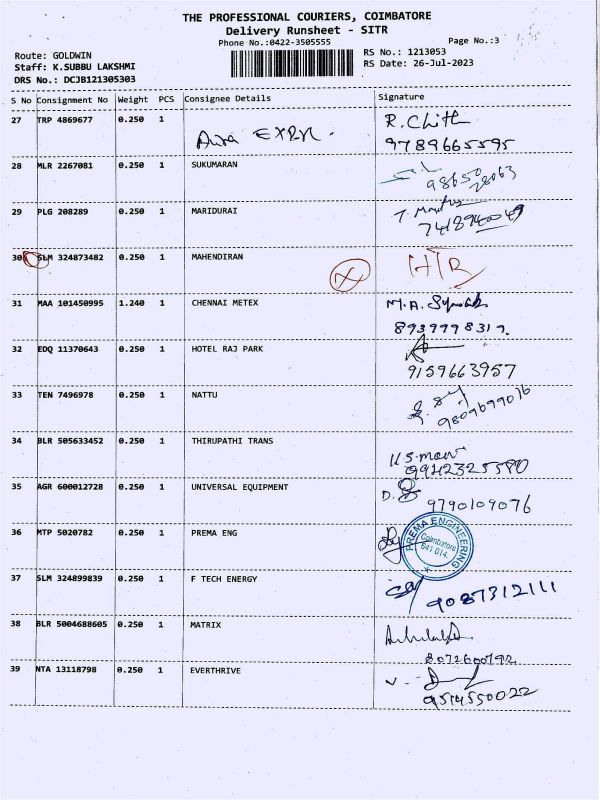 THE PROFESSIONAL COURIERS, COIMBATORE
Delivery Runsheet - SITR
Phone No.:0422-3505555
Page No.:3
Route: GOLDWIN
RS No.: 1213053
Staff: K.SUBBU LAKSHMI
RS Date: 26-Jul-2023
DRS No.: DCJB121305303
S No Consignment No Weight PCS Consignee Details Signature
27 TRP 4869677 0.250 1 R. Chith
9789665595
28 MLR 2267081 0.250 1 SUKUMARAN
98650 28063
29 PLG 208289 0.250 1 MARIDURAI
7418940049
30 SLM 324873482 0.250 1 MAHENDIRAN
31 MAA 101450995 1.240 1 CHENNAI METEX M.A.
8939998317.
32 EDQ 11370643 0.250 1 HOTEL RAJ PARK
9159663957
33 TEN 7496978 0.250 1 NATTU
9809699016
34 BLR 505633452 0.250 1 THIRUPATHI TRANS
9942325580
35 AGR 600012728 0.250 1 UNIVERSAL EQUIPMENT D.
9790109076
36 MTP 5020782 0.250 1 PREMA ENG PREMA ENGINEERING
Coimbatore
641 014.
37 SLM 324899839 0.250 1 F TECH ENERGY
9087312111
38 BLR 5004688605 0.250 1 MATRIX
8072600792
39 NTA 13118798 0.250 1 EVERTHRIVE
9514550022